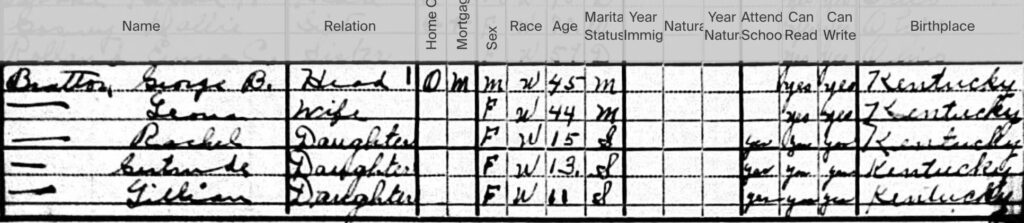 Name Relation Home O Mortgag Sex Race Age Marita Status Year Immig Natura Year Natur Attend Schoo Can Read Can Write Birthplace
Bratton, George B. Head 1 O M M W 45 M yes yes Kentucky
— Leona Wife F W 44 M yes yes Kentucky
— Rachel Daughter F W 15 S yes yes yes Kentucky
— Gertrude Daughter F W 13 S yes yes yes Kentucky
— Lillian Daughter F W 11 S yes yes yes Kentucky